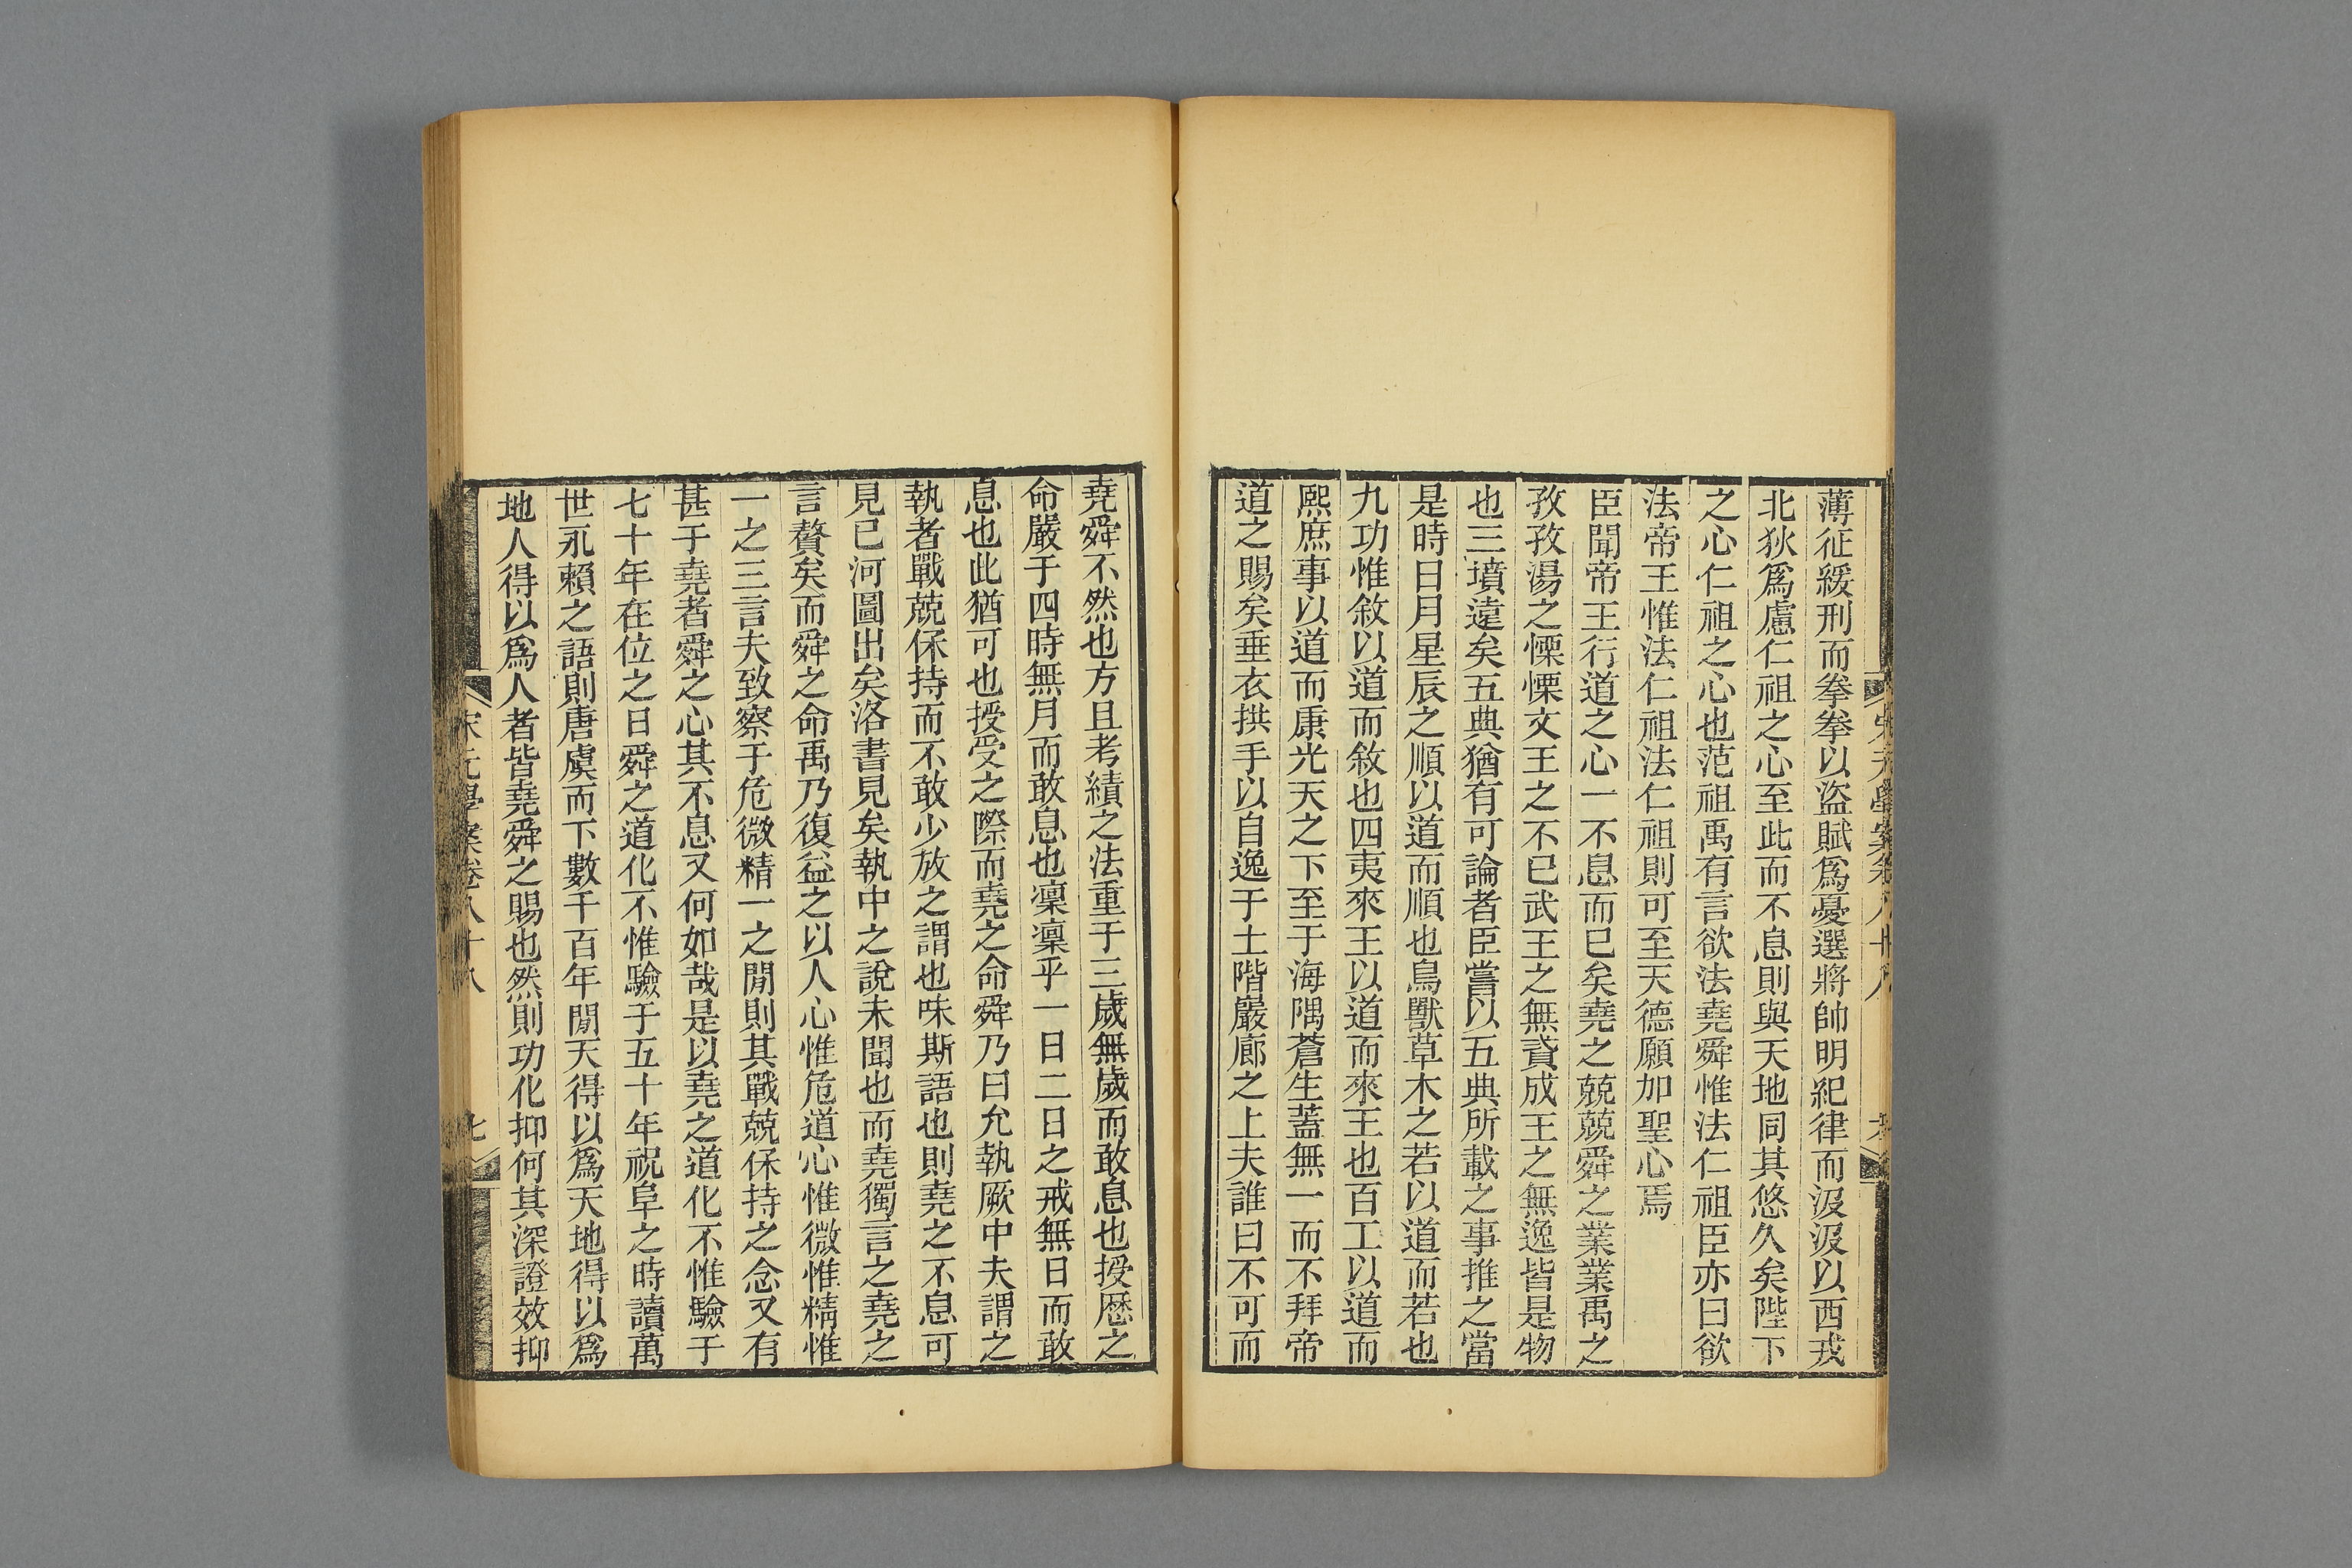 薄征緩刑而拳拳以盜賊爲憂選將帥明紀律而汲汲以西戎
北狄爲慮仁祖之心至此而不息則與天地同其悠久矣陛下
之心仁祖之心也范祖禹有言欲法堯舜惟法仁祖臣亦曰欲
法帝王惟法仁祖法仁祖則可至天德願加聖心焉
臣聞帝王行道之心一不息而已矣堯之兢兢舜之業業禹之
孜孜湯之慄慄文王之不已武王之無貳成王之無逸皆是物
也三墳遠矣五典猶有可論者臣嘗以五典所載之事推之當
是時日月星辰之順以道而順也鳥獸草木之若以道而若也
九功惟敘以道而敘也四夷來王以道而來王也百工以道而
熙庶事以道而康光天之下至于海隅蒼生蓋無一而不拜帝
道之賜矣垂衣拱手以自逸于土階巖廊之上夫誰曰不可而
堯舜不然也方且考績之法重于三歲無歲而敢息也授歷之
命嚴于四時無月而敢息也凜凜乎一日二日之戒無日而敢
息也此猶可也授受之際而堯之命舜乃曰允執厥中夫謂之
執者戰兢保持而不敢少放之謂也味斯語也則堯之不息可
見已河圖出矣洛書見矣執中之說未聞也而堯獨言之堯之
言贅矣而舜之命禹乃復益之以人心惟危道心惟微惟精惟
一之三言夫致察于危微精一之閒則其戰兢保持之念又有
甚于堯者舜之心其不息又何如哉是以堯之道化不惟驗于
七十年在位之日舜之道化不惟驗于五十年祝阜之時讀萬
世永賴之語則唐虞而下數千百年閒天得以爲天地得以爲
地人得以爲人者皆堯舜之賜也然則功化抑何其深證效抑
宋元學案卷八十八
七